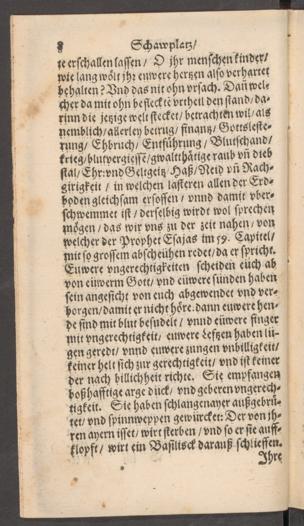 8 Schawplatz/
te erschallen lassen / O jhr menschen kinder/
wie lang wölt jhr euwere hertzen also verhartet
behalten? Vnd das nit ohn vrsach. Dañ wel-
cher da mit ohn befleckte vrtheil den stand / da-
rinn die jetzige welt stecket / betrachten wil / als
nemblich / allerley betrug / finantz / Gottsleste-
rung / Ehbruch / Entführung / Blutschand/
krieg / blutvergiesse / gwaltthätige raub vñ dieb
stal / Ehr: vnd Geltgeitz / Haß / Neid vñ Rach-
girigkeit / in welchen lasteren allen der Erd-
boden gleichsam ersoffen / vnnd damit vber-
schwemmet ist / derselbig wirdt wol sprechen
mögen / das wir vns zu der zeit nahen / von
welcher der Prophet Esajas im 59. Capitel/
mit so grossem abscheühen redet / da er spricht.
Euwere vngerechtigkeiten scheiden eüch ab
von eüwerm Gott / vnd eüwere sünden haben
sein angesicht von euch abgewendet vnd ver-
borgen / damit er nicht höre. dann euwere hen-
de sind mit blut besudelt / vnnd eüwere finger
mit vngerechtigkeit / euwere Lefftzen haben lü-
gen geredt / vnnd euwere zungen vnbilligkeit/
keiner helt sich zur gerechtigkeit / vnd ist keiner
der nach billichheit richte. Sie empfangen
boßhafftige arge dück / vnd geberen vngerech-
tigkeit. Sie haben schlangenayer außgebrü-
tet / vnd spinnweppen gewürcket: Der von jh-
ren ayern isset / wirt sterben / vnd so er sie auff-
klopft / wirt ein Basilisck darauß schlieffen.
Ihre